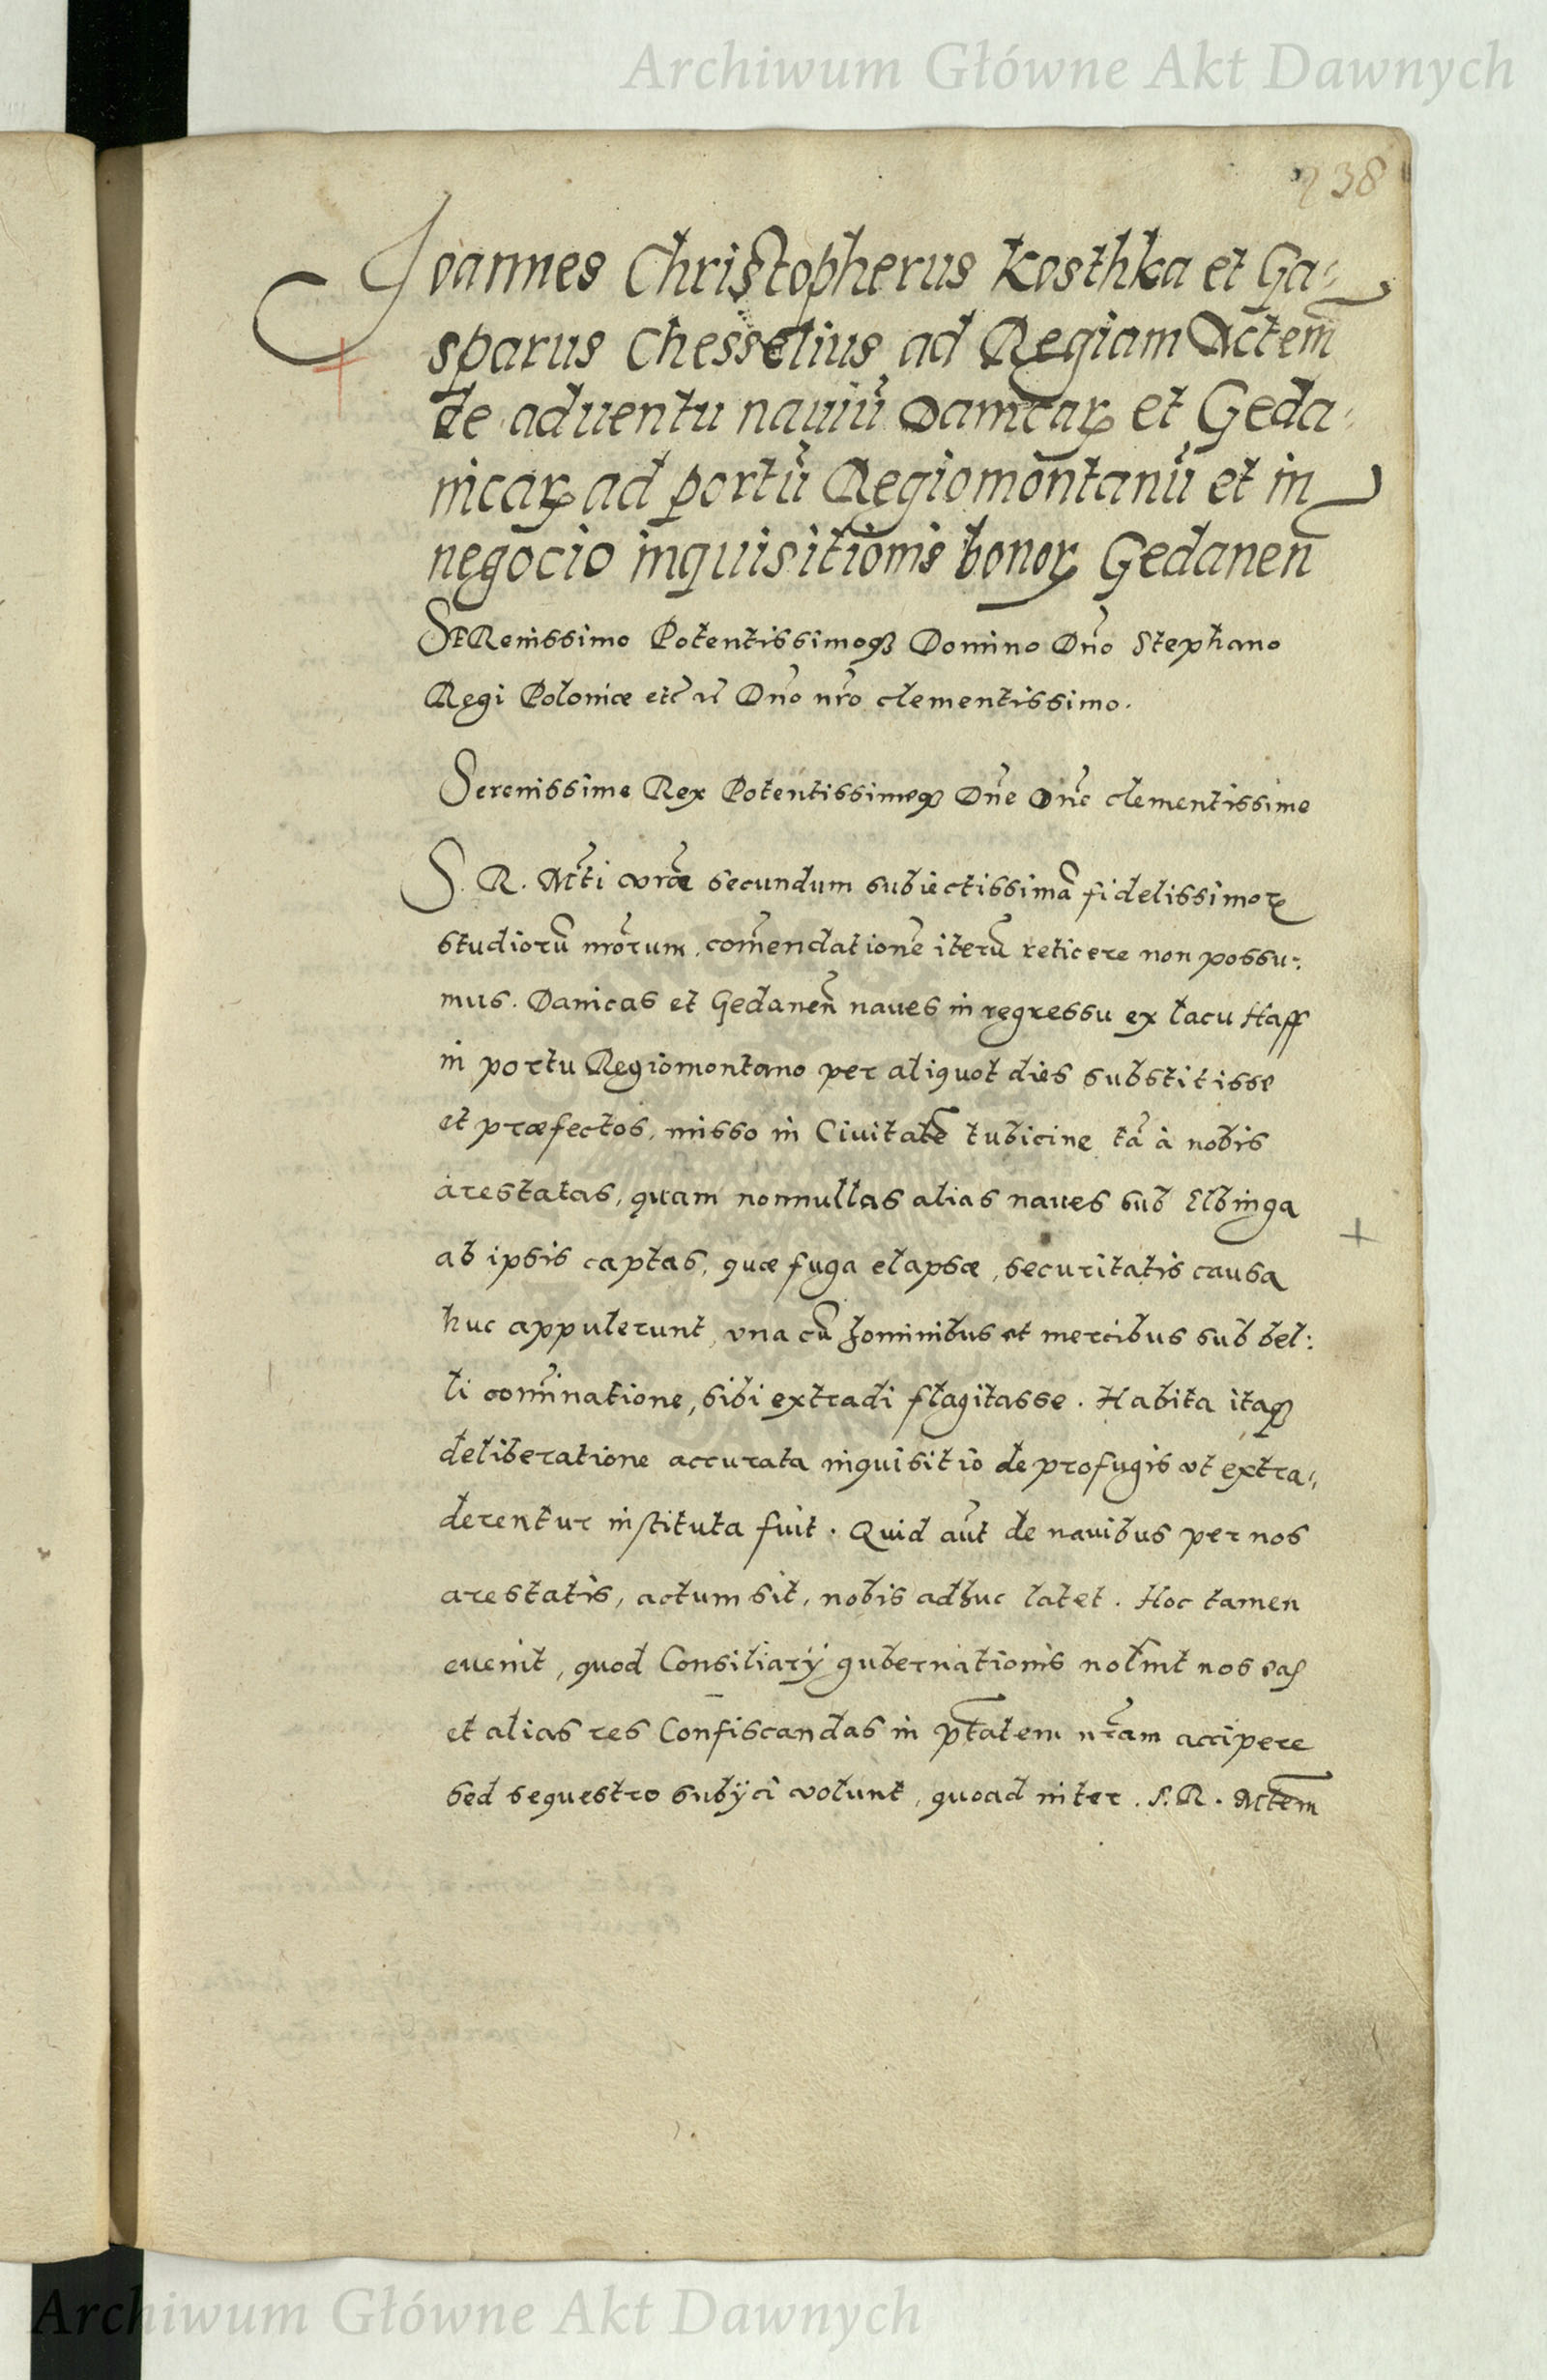 Archiwum Główne Akt Dawnych
238
Joannes Christopherus Kosthka et Ga-
sparus Chesselius ad Regiam Mtem
de aduentu nauiũ Danicarꝝ et Geda-
nicarꝝ ad portũ Regiomontanũ et in
negocio inquisitionis bonorꝝ Gedanen̄
SERenissimo Potentissimoqꝫ Domino Dño Stephano
Regi Poloniæ etc̃ Dño nr̃o clementissimo.
Serenissime Rex Potentissimeqꝫ Dñe Dñe clementissime
S. R. Mt̃i vr̃æ secundum subiectissimã fidelissimorꝝ
studiorũ nr̃orum, com̃endationẽ iterũ reticere non possu-
mus. Danicas et Gedanen̄ naues in regressu ex lacu Haff
in portu Regiomontano per aliquot dies substitisse
et præfectos, misso in Ciuitatẽ tubicine tã à nobis
arestatas, quam nonnullas alias naues sub Elbinga
ab ipsis captas, quæ fuga elapsæ, securitatis causa
huc appulerunt, vna cũ hominibus et mercibus sub bel-
li com̃inatione, sibi extradi flagitasse. Habita itaqꝫ
deliberatione accurata inquisitio de profugis vt extra-
derentur instituta fuit. Quid aũt de nauibus per nos
arestatis, actum sit, nobis adhuc latet. Hoc tamen
euenit, quod Consiliarÿ gubernationis nolĩnt nos eas
et alias res Confiscandas in pt̃atem nr̃am accipere
sed sequestro subÿci volunt, quoad inter. S. R. Mtem
Archiwum Główne Akt Dawnych